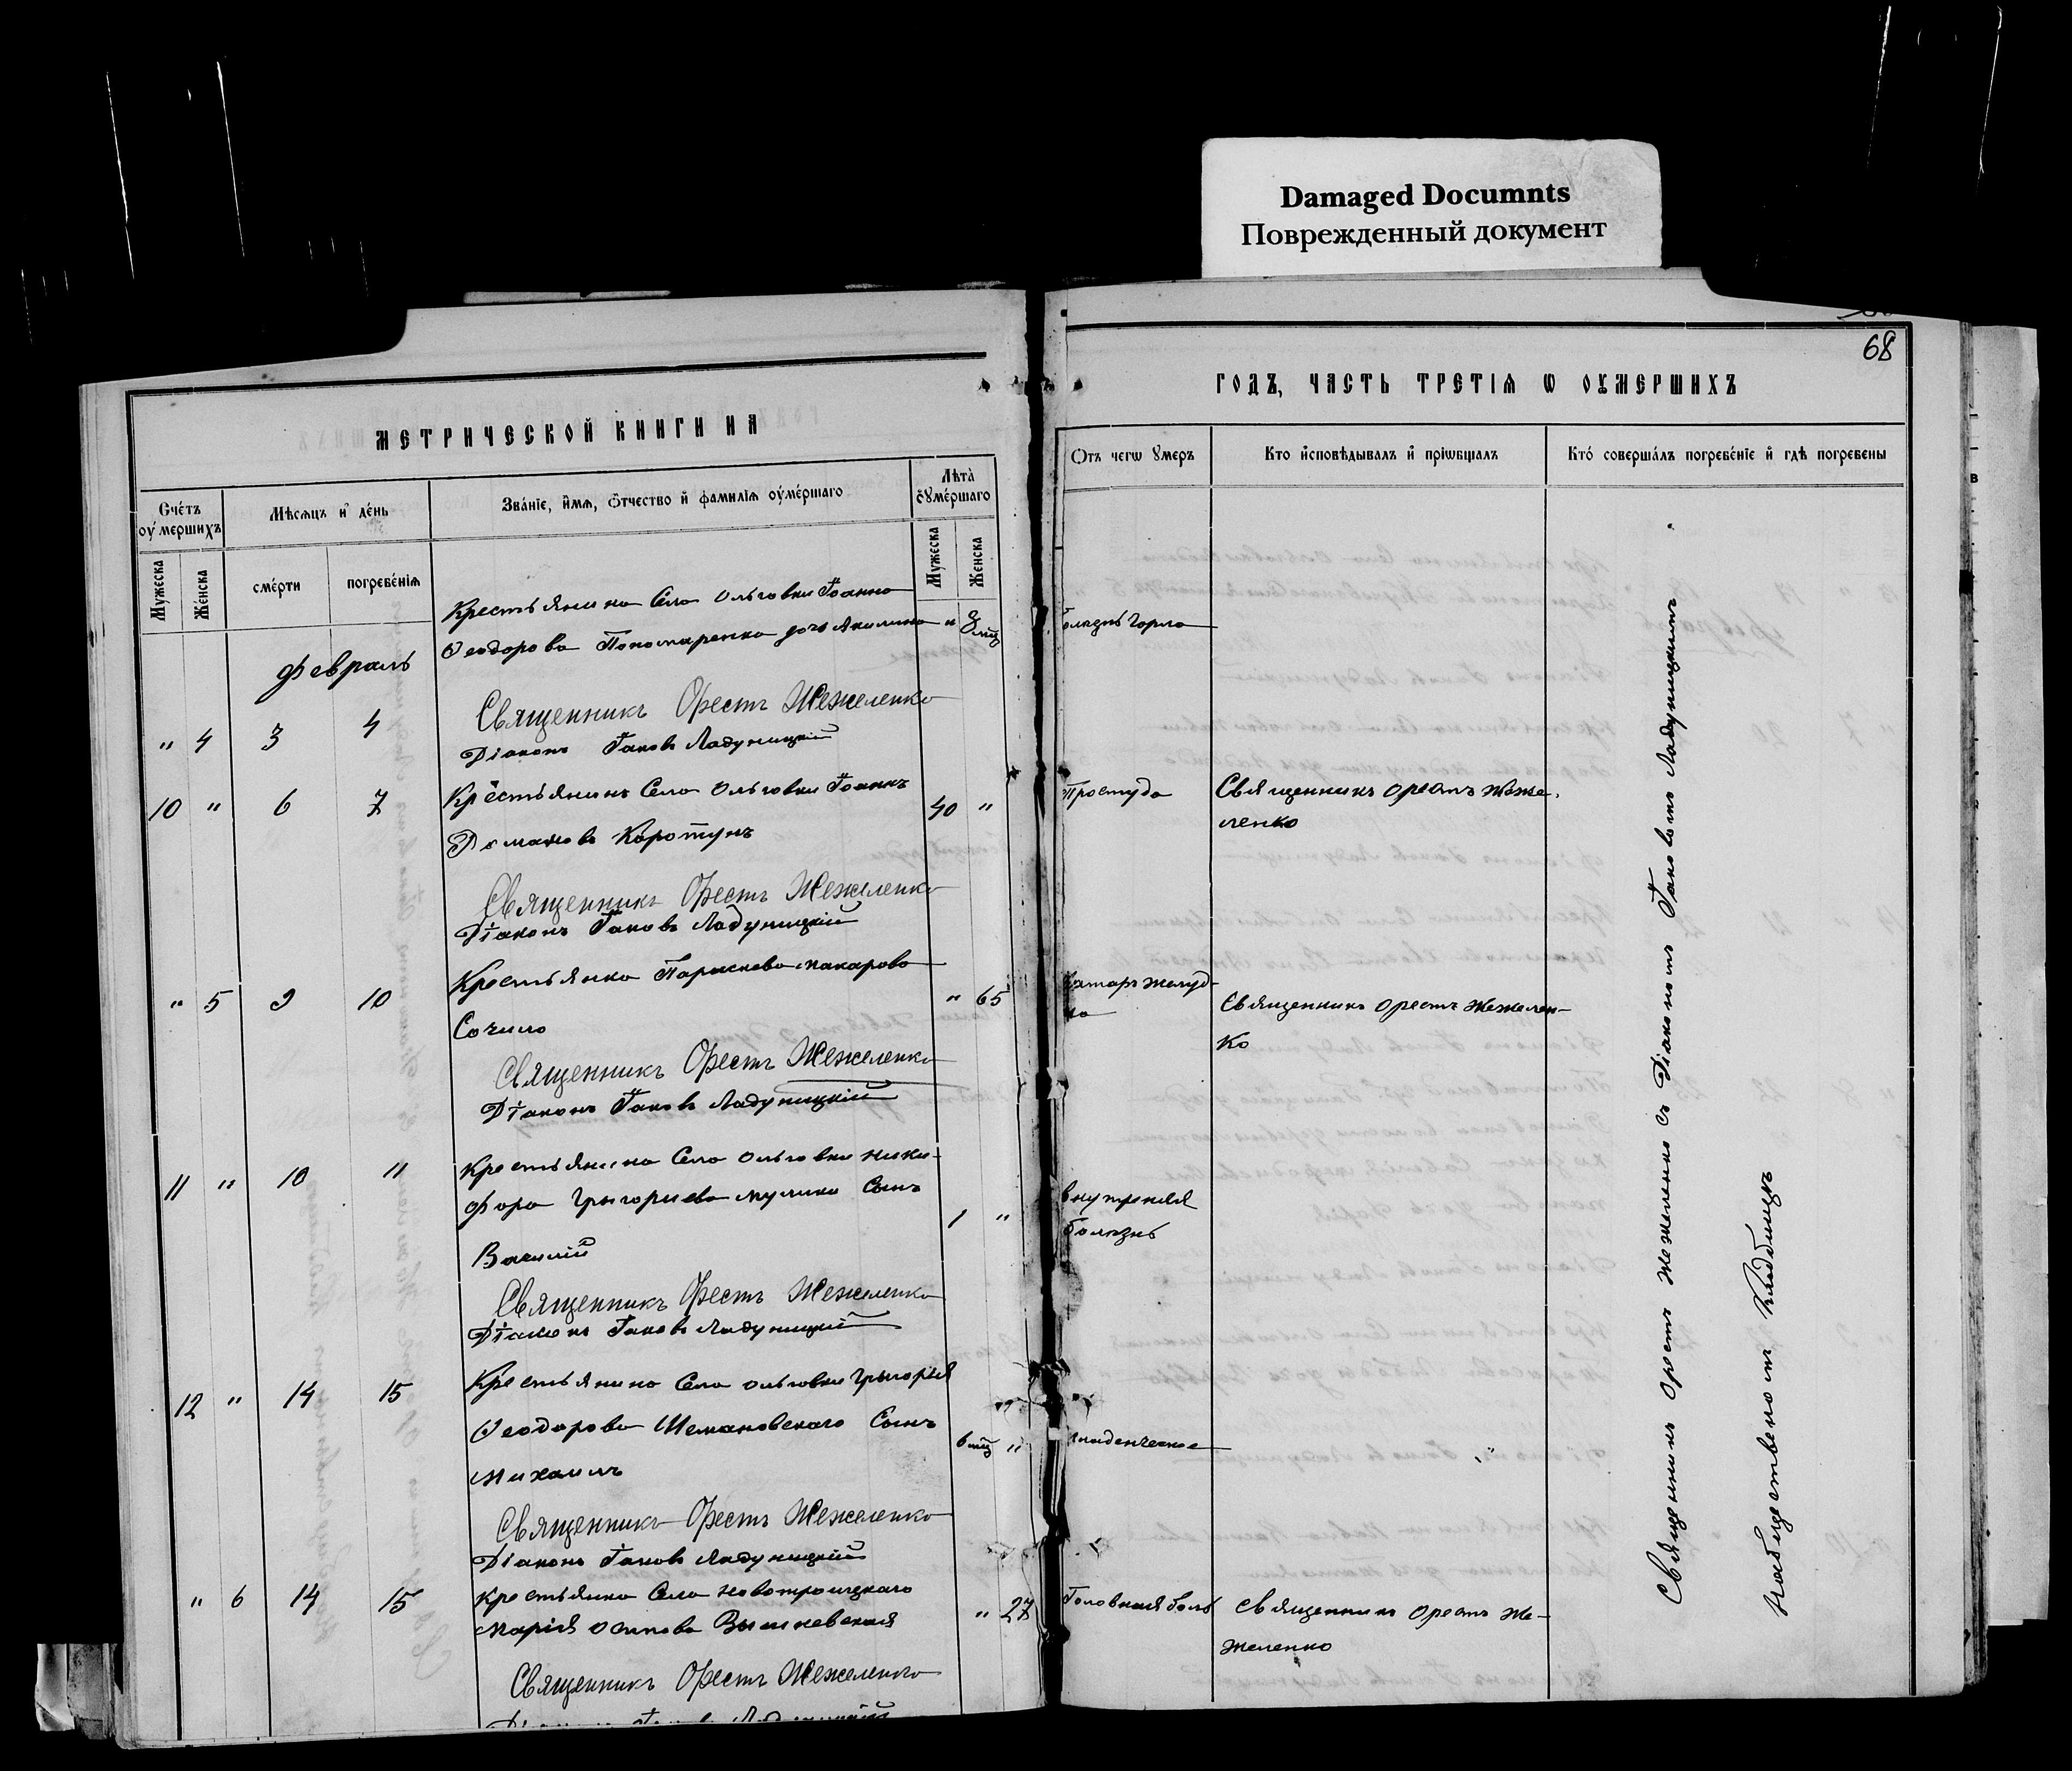 Damaged Documnts
Поврежденный документ
68
МЕТРИЧЕСКОЙ КНИГИ НА
ГОДЪ, ЧАСТЬ ТРЕТІѦ Ѡ ОУМЕРШИХЪ
Счётъ оумершихъ
Мѣсѧцъ и день
Званіе, имѧ, ѿчество и фамиліѧ оумершаго
Лѣта оумершаго
Мужеска
Женска
смерти
погребеніѧ
Мужеска
Женска
Отъ чегѡ умеръ
Кто исповѣдывалъ и пріѡбщалъ
Кто совершалъ погребеніе и гдѣ погребены
Февраль
Крестьянина Села Ольговки Іоанна
Ѳеодорова Пономаренка дочь Акилина " 8 мц
болезнь горла
" 4 3 4
Священникъ Орестъ Жежеленко
Діаконъ Іаковъ Ладуницкій
10 " 6 7
Крестьянинъ Села Ольговки Іоаннъ
Домановъ Коротунъ
40 "
Простуда
Священникъ Орестъ Жеже-
ленко
Священникъ Орестъ Жежеленко
Діаконъ Іаковъ Ладуницкій
" 5 9 10
Крестьянка Параскева Макарова
Сочило
" 65
Катаръ желуд-
ка
Священникъ Орестъ Жежелен-
ко
Священникъ Орестъ Жежеленко
Діаконъ Іаковъ Ладуницкій
11 " 10 11
Крестьянина Села Ольговки Ники-
фора Григориева Мулика Сынъ
Василій
1 "
внутреняя
болезнь
Священникъ Орестъ Жежеленко
Діаконъ Іаковъ Ладуницкій
12 " 14 15
Крестьянина Села Ольговки Григорія
Ѳеодорова Шемановскаго Сынъ
Михаилъ
6 мц "
младенческое
Священникъ Орестъ Жежеленко
Діаконъ Іаковъ Ладуницкій
" 6 14 15
Крестьянка Села Новотроицкаго
Марія Осипова Вишневская
" 27
Головная боль
Священникъ Орестъ Же-
желенко
Священникъ Орестъ Жежеленко
Діаконъ Іаковъ Ладуницкій
Священникъ Орестъ Жежеленко съ Діакономъ Іаковомъ Ладуницкимъ.
На общественномъ Кладбищѣ